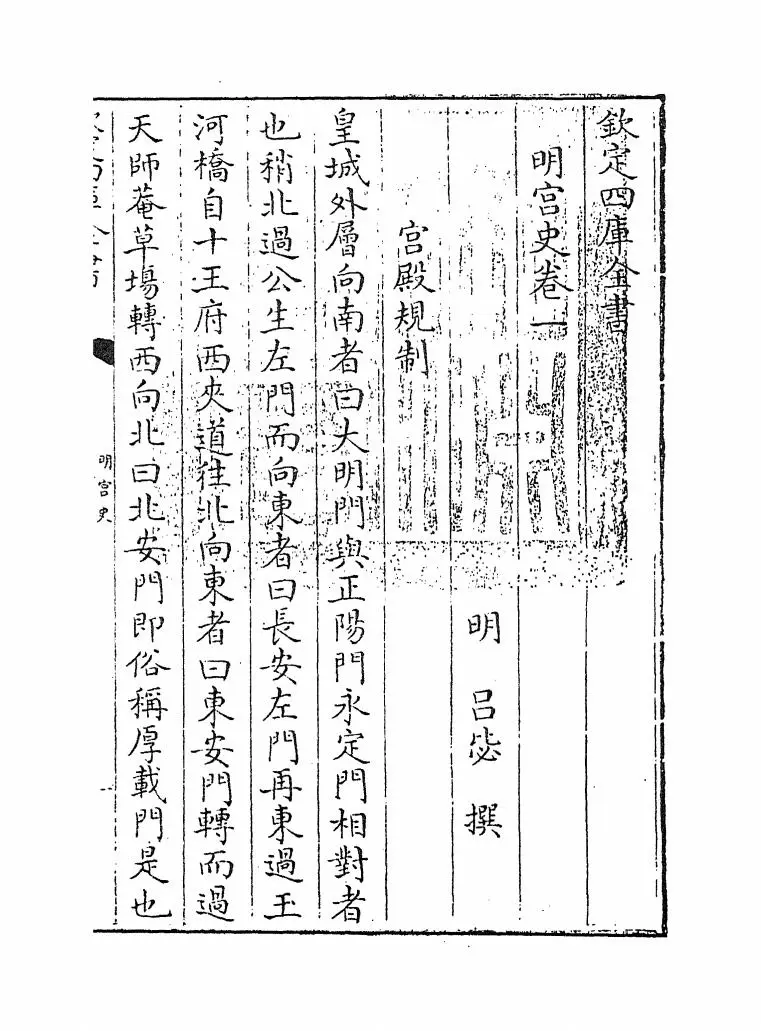 欽定四庫全書
明宫史卷一
明 吕毖 撰
宫殿規制
皇城外層向南者曰大明門與正陽門永定門相對者
也稍北過公生左門而向東者曰長安左門再東過玉
河橋自十王府西夾道往北向東者曰東安門轉而過
天師菴草塲轉西向北曰北安門即俗稱厚載門是也
明宫史